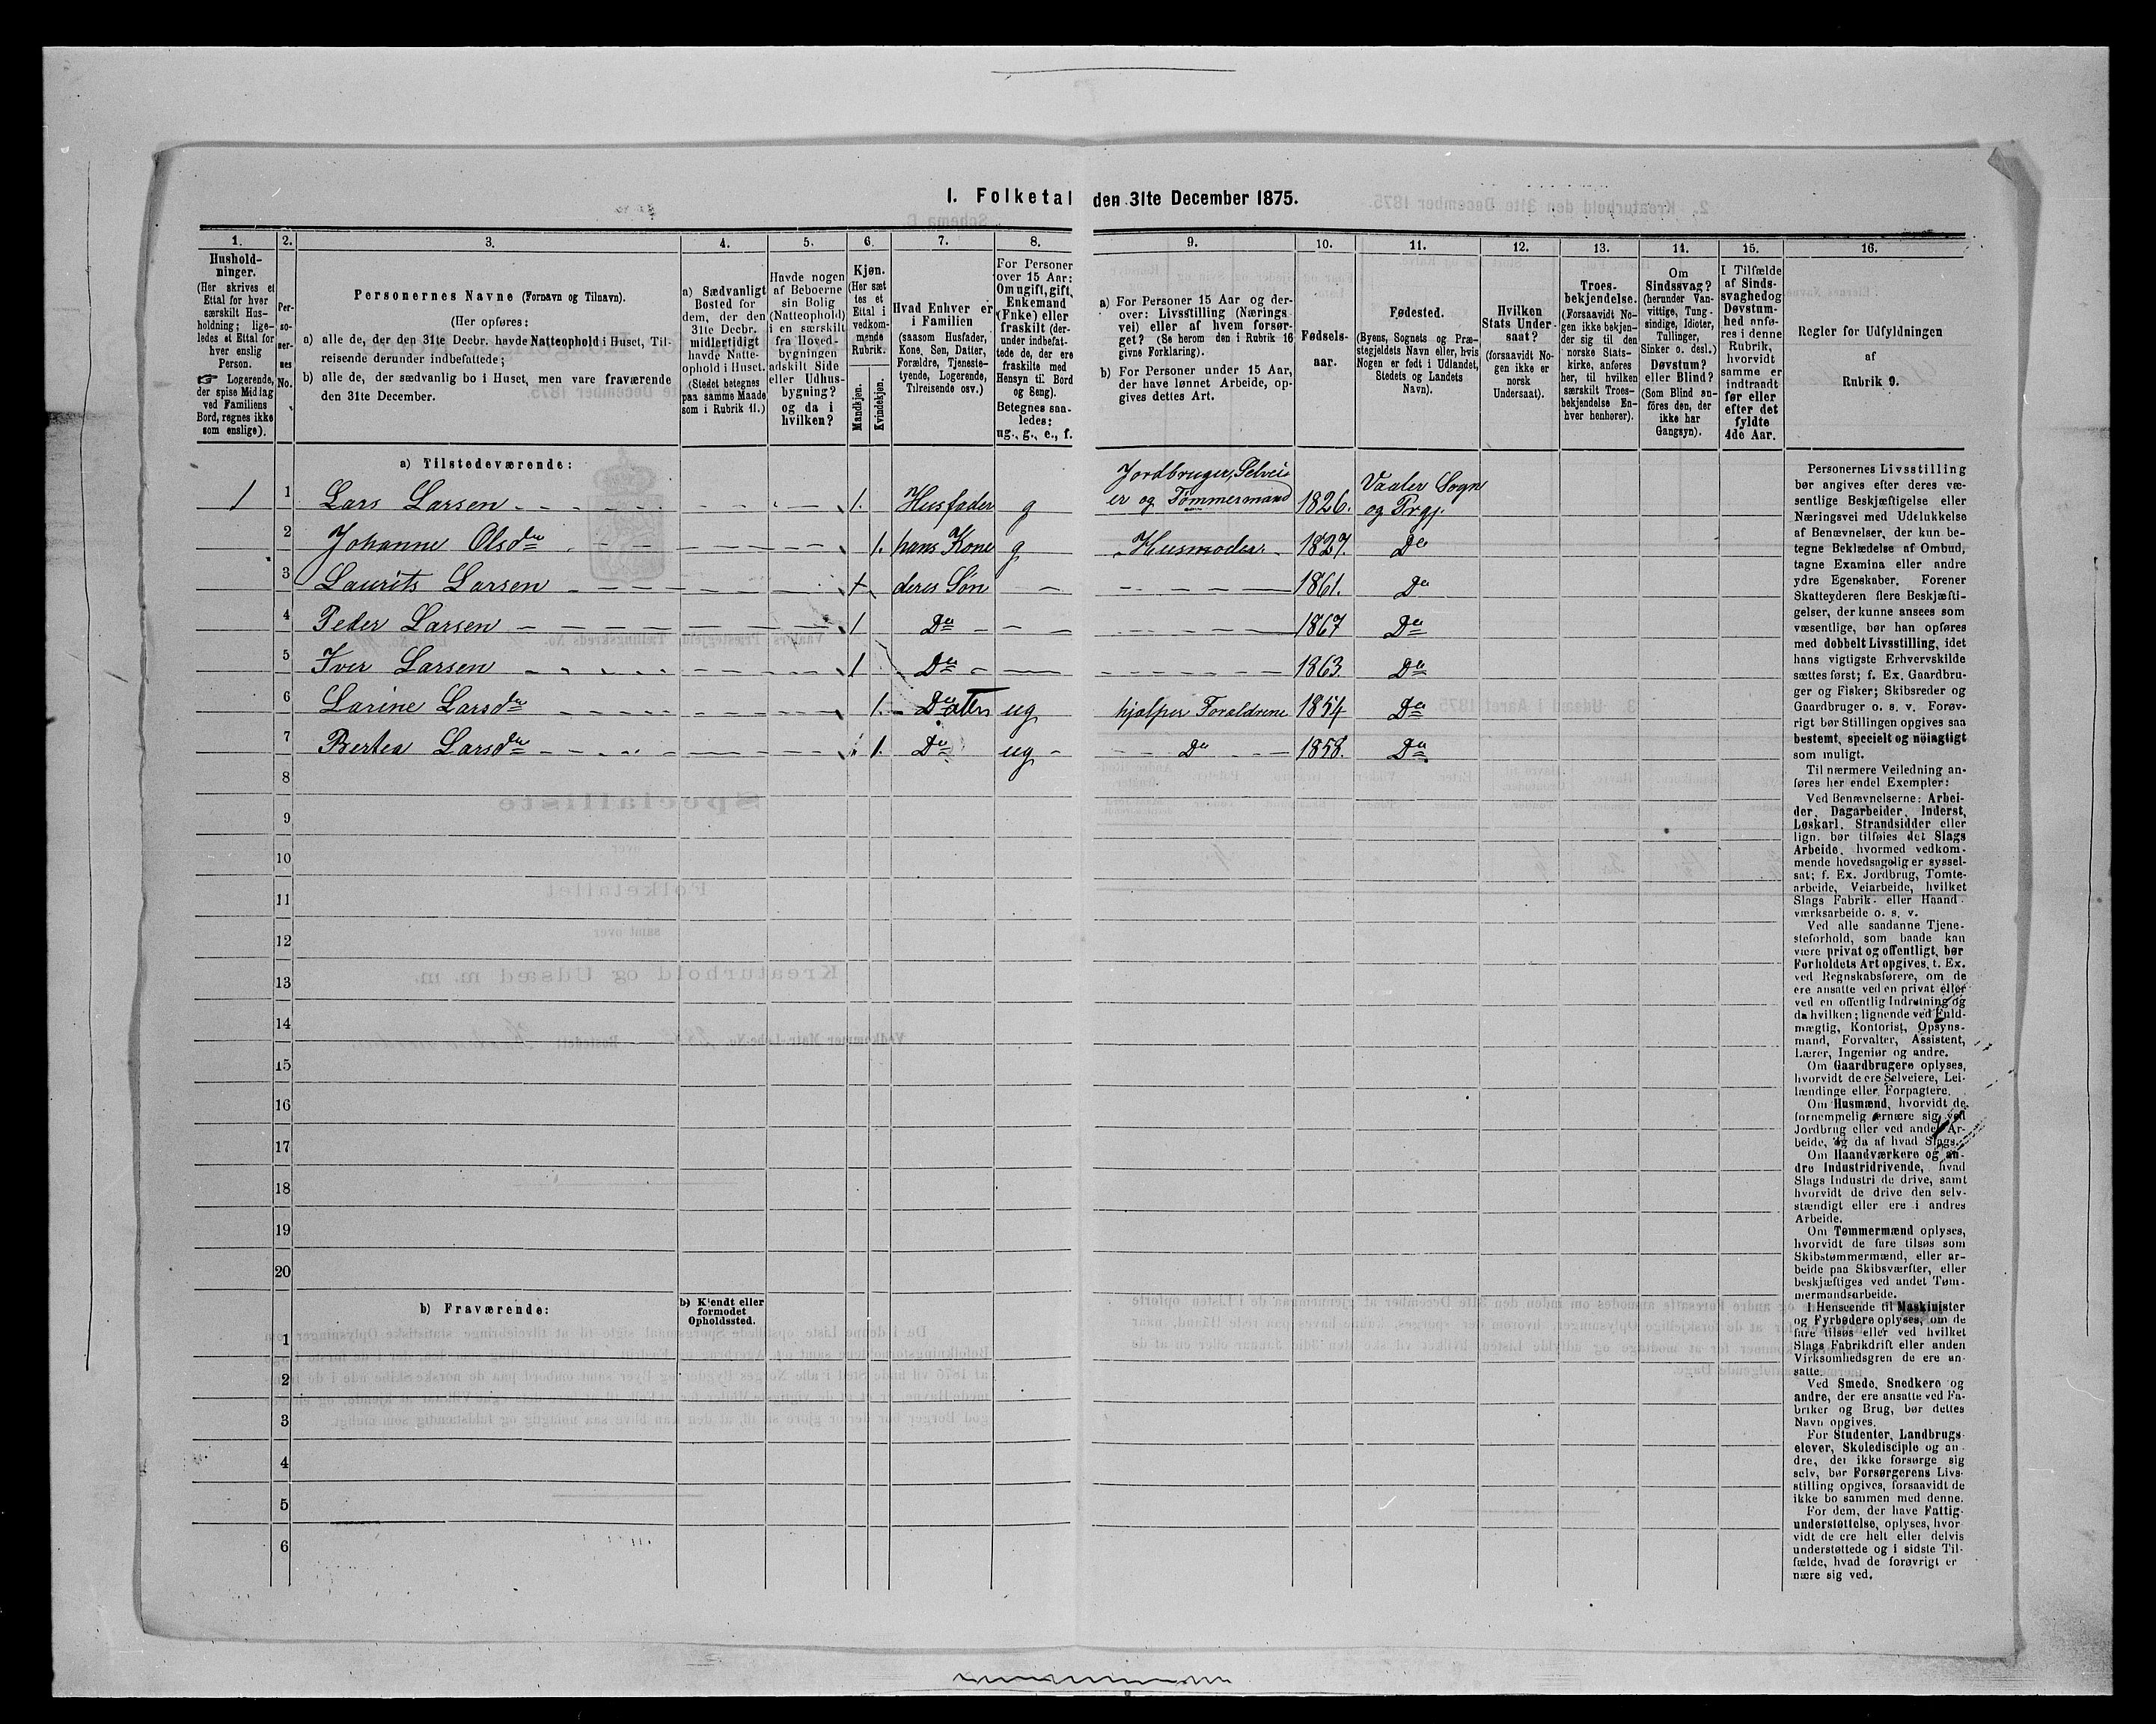 I. Folketal den 31te December 1875.
1. 2. 3. 4. 5. 6. 7. 8. 9. 10. 11. 12. 13. 14. 15. 16.
Hushold-
ninger.
(Her skrives et
Ettal for hver
særskilt Hus-
holdning; lige-
ledes et Ettal for
hver enslig
Person.
☞ Logerende,
der spise Middag
ved Familiens
Bord, regnes ikke
som enslige).
Per-
so-
ner-
nes
No.
Personernes Navne (Fornavn og Tilnavn).
(Her opføres:
a) alle de, der den 31te Decbr. havde Natteophold i Huset, Til-
reisende derunder indbefattede;
b) alle de, der sædvanlig bo i Huset, men vare fraværende
den 31te December.
a) Sædvanligt
Bosted for
dem, der den
31te Decbr.
midlertidigt
havde Natte-
ophold i Huset.
(Stedet betegnes
paa samme Maade
som i Rubrik 11.)
Havde nogen
af Beboerne
sin Bolig
(Natteophold)
i en særskilt
fra Hoved-
bygningen
adskilt Side
eller Udhus-
bygning?
og da i
hvilken?
Kjøn.
(Her sæt
tes et
Ettal i
vedkom-
mende
Rubrik.
Mandkjøn.
Kvindekjøn.
Hvad Enhver er
i Familien
(saasom Husfader,
Kone, Søn, Datter,
Forældre, Tjeneste-
tyende, Logerende,
Tilreisende osv.)
For Personer
over 15 Aar:
Om ugift, gift,
Enkemand
(Enke) eller
fraskilt (der-
under indbefat-
tede de, der ere
fraskilte med
Hensyn til Bord
og Seng).
Betegnes saa-
ledes:
ug., g., e., f.
a) For Personer 15 Aar og der-
over: Livsstilling (Nærings
vei) eller af hvem forsør-
get? (Se herom den i Rubrik 16
givne Forklaring).
b) For Personer under 15 Aar,
der have lønnet Arbeide, op-
gives dettes Art.
Fødsels-
aar.
Fødested.
(Byens, Sognets og Præ-
stegjeldets Navn eller, hvis
Nogen er født i Udlandet,
Stedets og Landets
Navn).
Hvilken
Stats Under-
saat?
(forsaavidt No-
gen ikke er
norsk
Undersaat).
Troes-
bekjendelse.
(Forsaavidt No-
gen ikke bekjen-
der sig til den
norske Stats-
kirke, anføres
her, til hvilken
særskilt Troes-
bekjendelse En-
hver henhører).
Om
Sindssvag?
(herunder Van-
vittige, Tung-
sindige, Idioter,
Tullinger,
Sinker o. desl.)
Døvstum?
eller Blind?
(Som Blind an-
føres den, der
ikke har
Gangsyn).
I Tilfælde
af Sinds-
svaghed og
Døvstum-
hed anfø-
res i denne
Rubrik,
hvorvidt
samme er
indtraadt
før eller
efter det
fyldte
4de Aar.
Regler for Udfyldningen
af
Rubrik 9.
a) Tilstedeværende:
1 1 Lars Larsen 1. Husfader g Jordbruger, Selvei-
er og Tømmermand 1826. Vaaler Sogn
og Prgj.
2 Johanne Olsdtr 1. hans Kone g Husmoder 1827. Do
3 Laurits Larsen 1 deres Søn 1861. Do
4 Peder Larsen 1 Do 1867 Do
5 Iver Larsen 1 Do 1863. Do
6 Larine Larsdtr 1. Datter ug hjælper Forældrene 1854 Do
7 Bertea Larsdtr 1. Do ug Do 1858. Do
8
9
10
11
12
13
14
15
16
17
18
19
20
b) Fraværende:
b) Kjendt eller
formodet
Opholdssted.
1
2
3
4
5
6
Personernes Livsstilling
bør angives efter deres væ-
sentlige Beskjæftigelse eller
Næringsvei med Udelukkelse
af Benævnelser, der kun be-
tegne Beklædelse af Ombud,
tagne Examina eller andre
ydre Egenskaber. Forener
Skatteyderen flere Beskjæfti-
gelser, der kunne ansees som
væsentlige, bør han opføres
med dobbelt Livsstilling, idet
hans vigtigste Erhvervskilde
sættes først; f. Ex. Gaardbru-
ger og Fisker; Skibsreder og
Gaardbruger o. s. v. Forøv-
rigt bør Stillingen opgives saa
bestemt, specielt og nöiagtigt
som muligt.
Til nærmere Veiledning an-
føres her endel Exempler:
Ved Benævnelserne: Arbei-
der, Dagarbeider, Inderst,
Løskarl, Strandsidder eller
lign. bør tilføies det Slags
Arbeide, hvormed vedkom-
mende hovedsagelig er syssel-
sat; f. Ex. Jordbrug, Tomte-
arbeide, Veiarbeide, hvilket
Slags Fabrik- eller Haand-
værksarbeide o. s. v.
Ved alle saadanne Tjene-
steforhold, som baade kan
være privat og offentligt, bør
Forholdets Art opgives, t. Ex.
ved Regnskabsførere, om de
ere ansatte ved en privat eller
ved en offentlig Indretning og
da hvilken; lignende ved Fuld-
mægtig, Kontorist, Opsyns-
mand, Forvalter, Assistent,
Lærer, Ingeniør og andre.
Om Gaardbrugere oplyses,
hvorvidt de ere Selveiere, Lei-
lændinge eller Forpagtere.
Om Husmænd, hvorvidt de
fornemmelig ernære sig ved
Jordbrug eller ved andet Ar-
beide, og da af hvad Slags.
Om Haandværkere og an-
dre Industridrivende, hvad
Slags Industri de drive, samt
hvorvidt de drive den selv-
stændigt eller ere i andres
Arbeide.
Om Tømmermænd oplyses,
hvorvidt de fare tilsøs som
Skibstømmermænd, eller ar-
beide paa Skibsværfter, eller
beskjæftiges ved andet Tøm-
mermandsarbeide.
I Henseende til Maskinister
og Fyrbødere oplyses, om de
fare tilsøs eller ved hvilket
Slags Fabrikdrift eller anden
Virksomhedsgren de ere an-
satte.
Ved Smede, Snedkere og
andre, der ere ansatte ved Fa-
briker og Brug, bør dettes
Navn opgives.
For Studenter, Landbrugs-
elever, Skoledisciple og an-
dre, der ikke forsørge sig
selv, bør Forsørgerens Livs-
stilling opgives, forsaavidt de
ikke bo sammen med denne.
For dem, der have Fattig-
understøttelse, oplyses, hvor-
vidt de ere helt eller delvis
understøttede og i sidste Til-
fælde, hvad de forøvrigt er
nære sig ved.